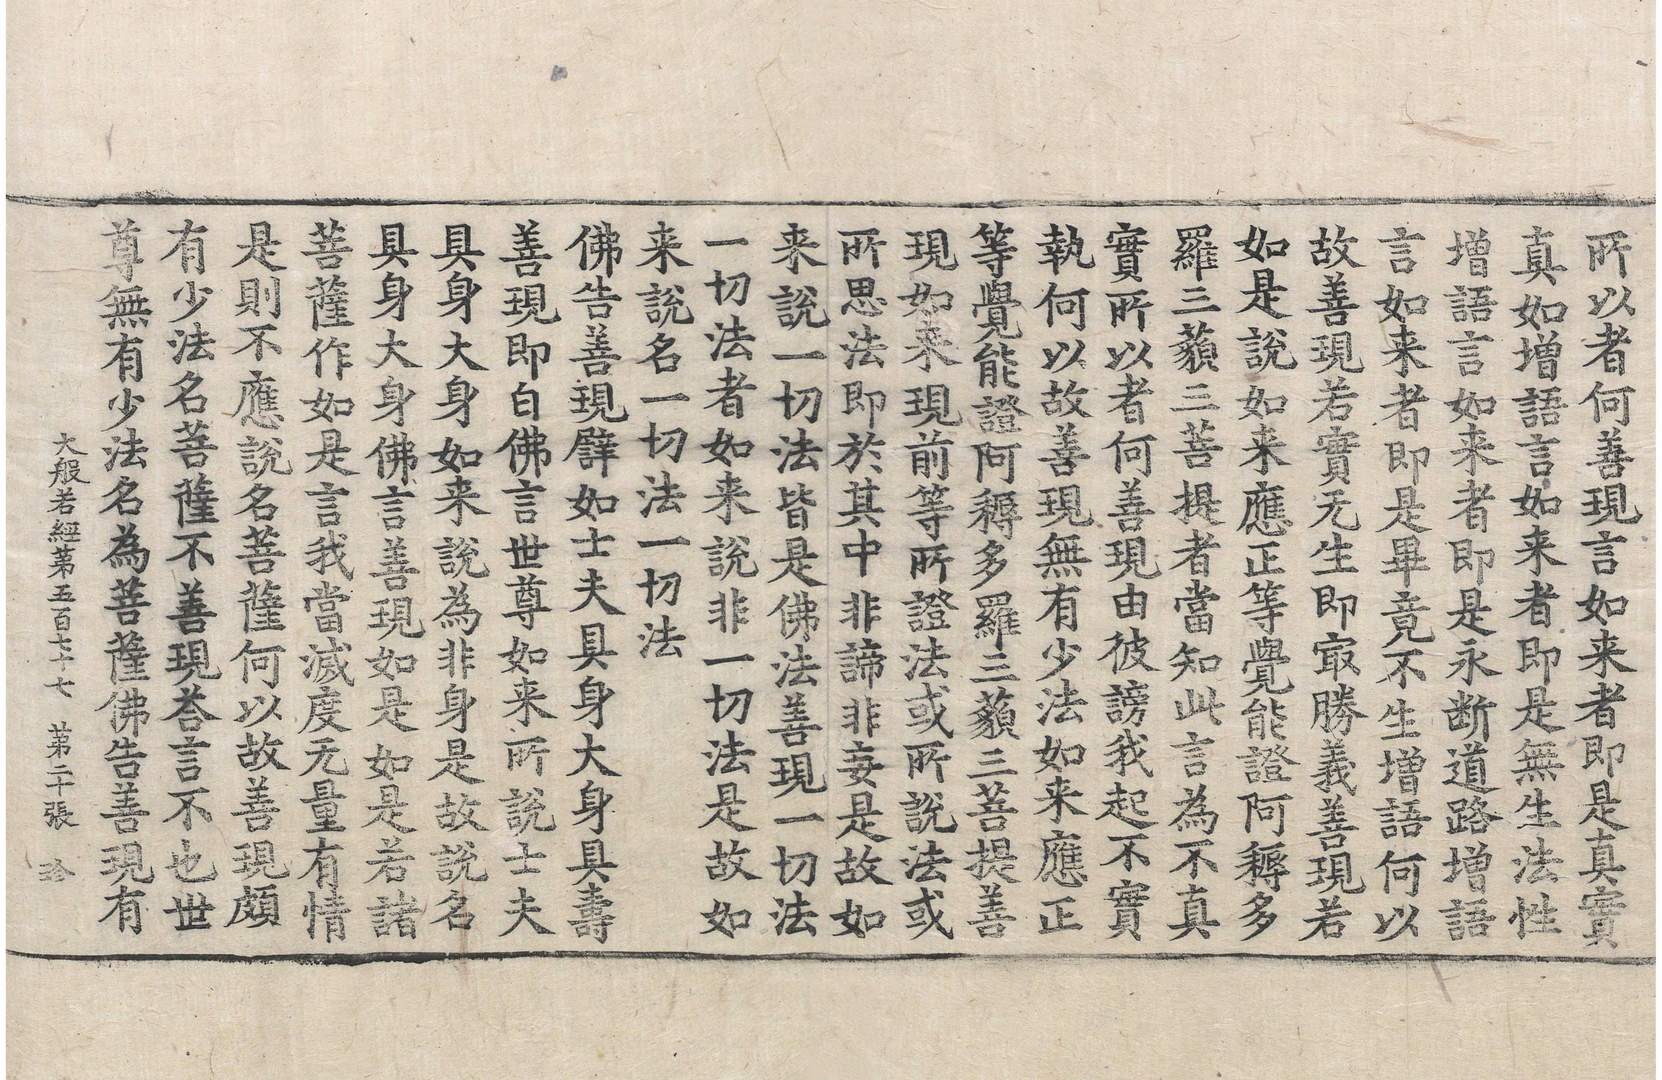 所以者何善現言如来者即是真實
真如增語言如来者即是無生法性
增語言如来者即是永断道路增語
言如来者即是畢竟不生增語何以
故善現若實无生即冣勝義善現若
如是說如来應正等覺能證阿耨多
羅三藐三菩提者當知此言為不真
實所以者何善現由彼謗我起不實
執何以故善現無有少法如来應正
等覺能證阿耨多羅三藐三菩提善
現如来現前等所證法或所說法或
所思法即於其中非諦非妄是故如
来說一切法皆是佛法善現一切法
一切法者如来說非一切法是故如
来說名一切法一切法
佛告善現譬如士夫具身大身具壽
善現即白佛言世尊如来所說士夫
具身大身如来說為非身是故說名
具身大身佛言善現如是如是若諸
菩薩作如是言我當滅度无量有情
是則不應說名菩薩何以故善現頗
有少法名菩薩不善現荅言不也世
尊無有少法名為菩薩佛告善現有
大般若經第五百七十七 第二十張 珎